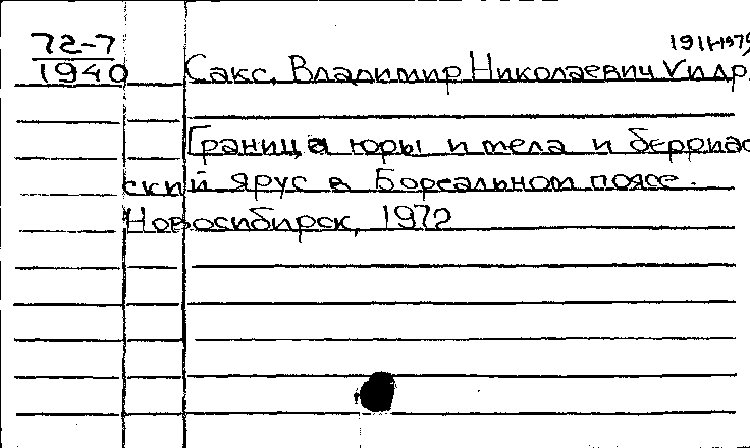 1911-1979
72-7
1940
Сакс, Владимир Николаевич и др.
Граница юры и мела и берриас
ский ярус в Бореальном поясе.
Новосибирск, 1972